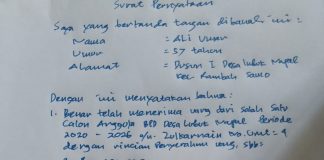 Surat Pernyataan
Saya yang bertanda tangan dibawah ini :
Nama : Ali Umar
Umur : 57 tahun
Alamat : Dusun I Desa Lubuk Napal
Kec. Rambah Samo
Dengan ini menyatakan bahwa :
1. Benar telah menerima uang dari salah satu
Calon Anggota BPD Desa Lubuk Napal Periode
2020 - 2026 a/n. Zulkarnain No. Urut : 4
dengan rincian Penyerahan uang, sbb :